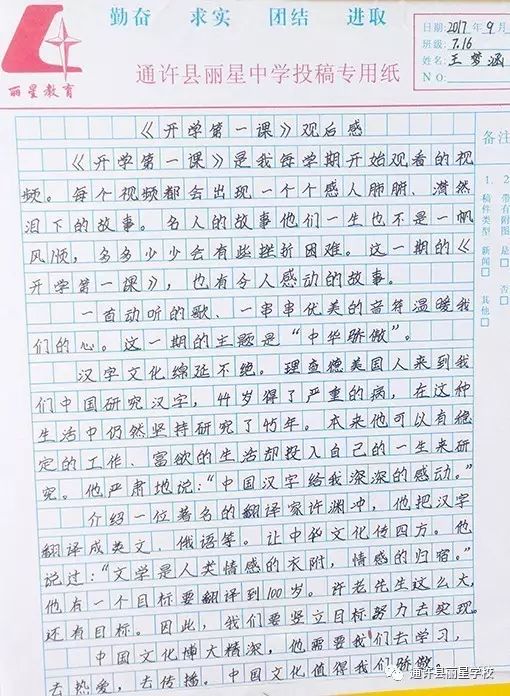 勤奋 求实 团结 进取
日期:2017年9月
班级:7.16
姓名:王梦涵
NO:
丽星教育
通许县丽星中学投稿专用纸
备注
1、稿件类型 新闻□ 其他□
2、带有附图 是□ 否□
《开学第一课》观后感
《开学第一课》是我每学期开始观看的视
频。每个视频都会出现一个个感人肺腑、潸然
泪下的故事。名人的故事他们一生也不是一帆
风顺,多多少少会有些挫折困难。这一期的《
开学第一课》,也有令人感动的故事。
一首动听的歌、一串串优美的音符温暖我
们的心。这一期的主题是“中华骄傲”。
汉字文化绵延不绝。理查德美国人来到我
们中国研究汉字,44岁得了严重的病,在这种
生活中仍然坚持研究了45年。本来他可以有稳
定的工作、富欲的生活却投入自己的一生来研
究。他严肃地说:“中国汉字给我深深的感动。”
介绍一位著名的翻译家许渊冲,他把汉字
翻译成英文、俄语等。让中华文化传四方。他
说过:“文学是人类情感的衣附,情感的归宿。”
他有一个目标要翻译到100岁。许老先生这么大
还有目标。因此,我们要竖立目标努力去实现。
中国文化博大精深,他需要我们去学习,
去热爱,去传播。中国文化值得我们骄傲。
通许县丽星学校